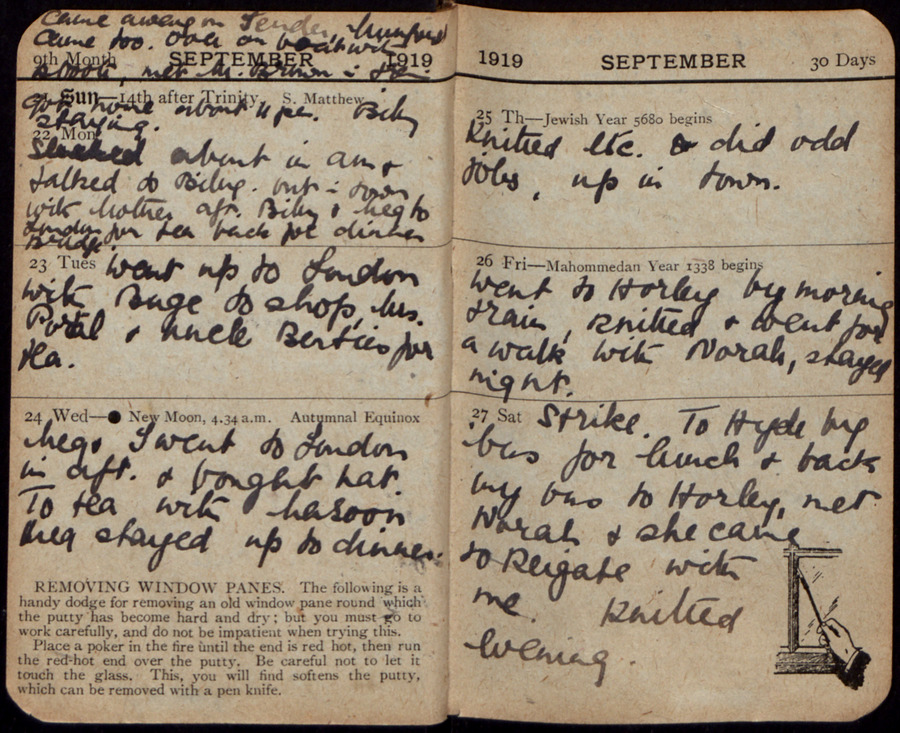 Came away on
came too. Over on boat with
9th Month SEPTEMBER 1919
met Mr.
21 Sun—14th after Trinity. S. Matthew
Got home about 11 pm. Billy
staying.
22 Mon
about in am &
talked to Billy. Out in town
with Mother aft. Billy & Meg to
London for tea back for dinner
Bridge.
23 Tues Went up to London
with to shop, Mrs.
Portal & Uncle Bertie's for
tea.
24 Wed—● New Moon, 4.34 a.m. Autumnal Equinox
Meg & I went to London
in aft. & bought hat.
To tea with
Meg stayed up to dinner.
REMOVING WINDOW PANES. The following is a
handy dodge for removing an old window pane round which
the putty has become hard and dry; but you must go to
work carefully, and do not be impatient when trying this.
Place a poker in the fire until the end is red hot, then run
the red-hot end over the putty. Be careful not to let it
touch the glass. This, you will find softens the putty,
which can be removed with a pen knife.
1919 SEPTEMBER 30 Days
25 Th—Jewish Year 5680 begins
Knitted etc. & did odd
jobs, up in town.
26 Fri—Mahommedan Year 1338 begins
Went to Horley by morning
train, knitted & went for
a walk with Norah, stayed
night.
27 Sat Strike. To Hyde by
bus for lunch & back
by bus to Horley, met
Norah & she came
to Reigate with
me. Knitted
evening.